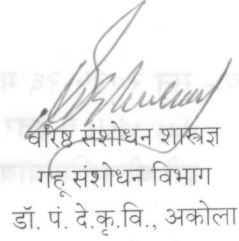 वरिष्ठ संशोधन शास्त्रज्ञ
गहू संशोधन विभाग
डॉ. पं. दे.कृ.वि., अकोला